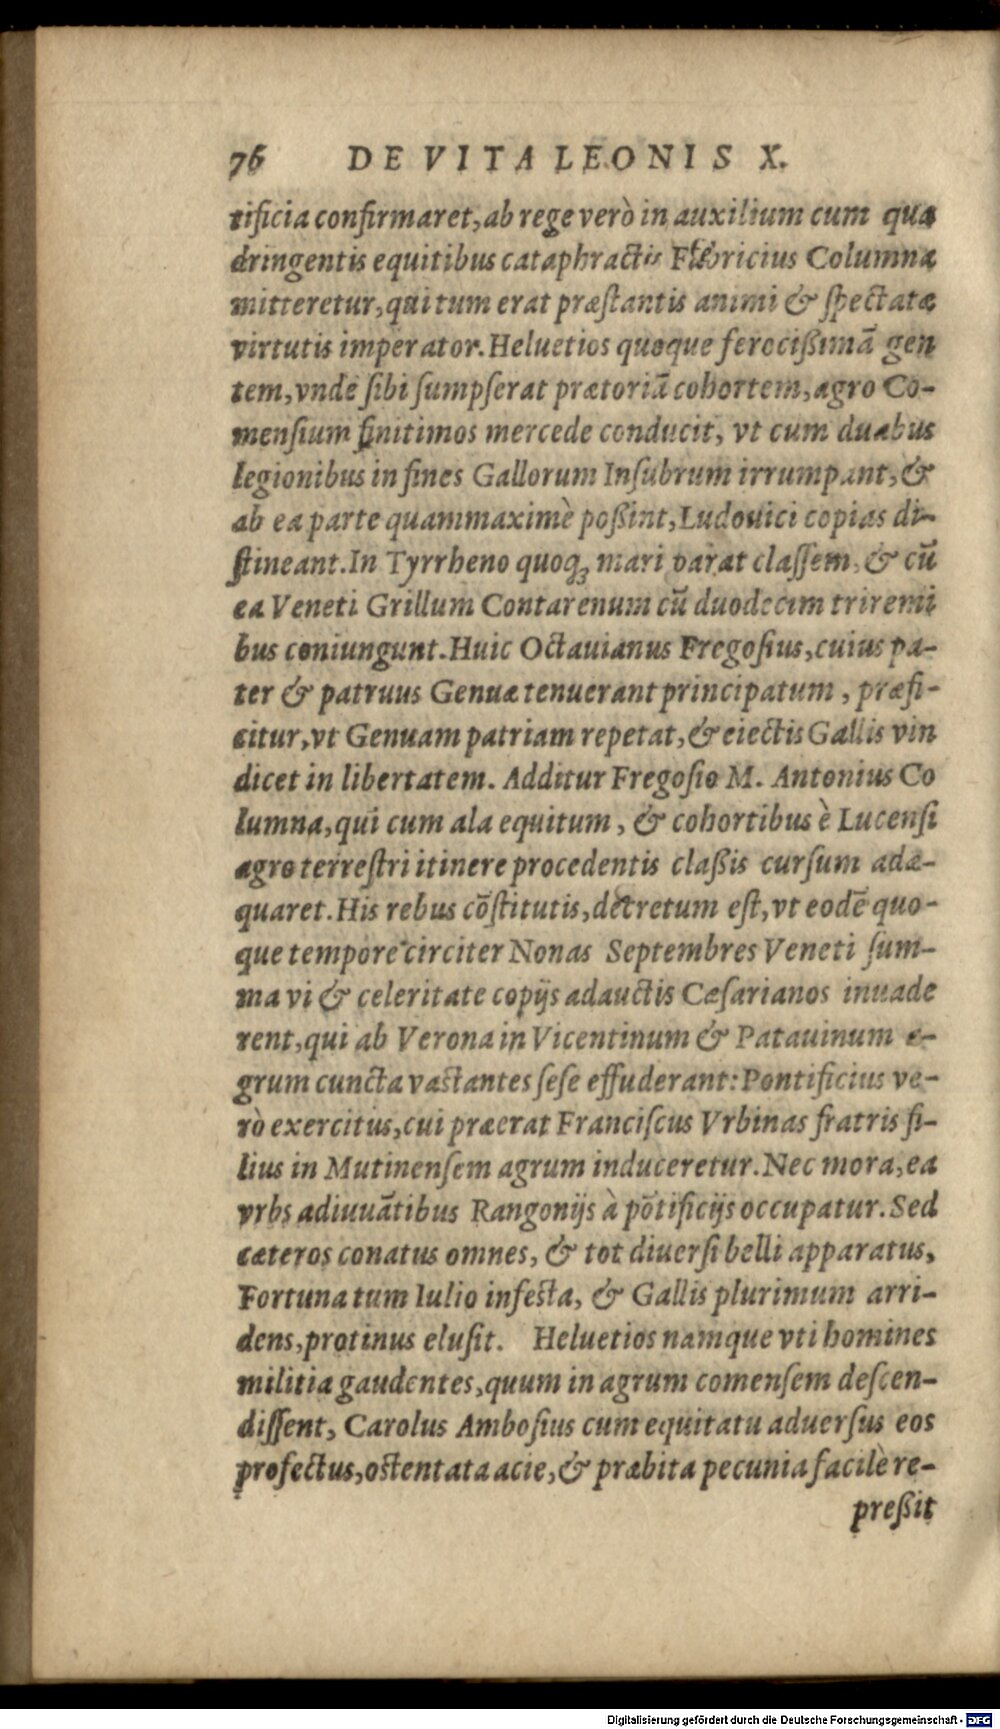 76 DE VITA LEONIS X.
tificia confirmaret, ab rege verò in auxilium cum qua
dringentis equitibus cataphractis Fabricius Columna
mitteretur, qui tum erat præſtantis animi & ſpectatæ
virtutis imperator. Heluetios quoque ferocißimā gen
tem, vnde ſibi ſumpſerat prætoriā cohortem, agro Co-
menſium finitimos mercede conducit, vt cum duabus
legionibus in fines Gallorum Inſubrum irrumpant, &
ab ea parte quammaximè poßint, Ludouici copias di-
ſtineant. In Tyrrheno quoq; mari parat claſſem, & cū
ea Veneti Grillum Contarenum cū duodecim triremi
bus coniungunt. Huic Octauianus Fregoſius, cuius pa-
ter & patruus Genuæ tenuerant principatum, præfi-
citur, vt Genuam patriam repetat, & eiectis Gallis vin
dicet in libertatem. Additur Fregoſio M. Antonius Co
lumna, qui cum ala equitum, & cohortibus è Lucenſi
agro terreſtri itinere procedentis claßis curſum adæ-
quaret. His rebus cōſtitutis, decretum eſt, vt eodē quo-
que tempore circiter Nonas Septembres Veneti ſum-
ma vi & celeritate copijs adauctis Cæſarianos inuade
rent, qui ab Verona in Vicentinum & Patauinum a-
grum cuncta vastantes ſeſe effuderant: Pontificius ve-
rò exercitus, cui præerat Franciſcus Vrbinas fratris fi-
lius in Mutinenſem agrum induceretur. Nec mora, ea
vrbs adiuuātibus Rangonijs à pōtificijs occupatur. Sed
cæteros conatus omnes, & tot diuerſi belli apparatus,
Fortuna tum Iulio infesta, & Gallis plurimum arri-
dens, protinus eluſit. Heluetios namque vti homines
militia gaudentes, quum in agrum comenſem deſcen-
diſſent, Carolus Amboſius cum equitatu aduerſus eos
profectus, ostentata acie, & præbita pecunia facilè re-
preßit
Digitalisierung gefördert durch die Deutsche Forschungsgemeinschaft - DFG